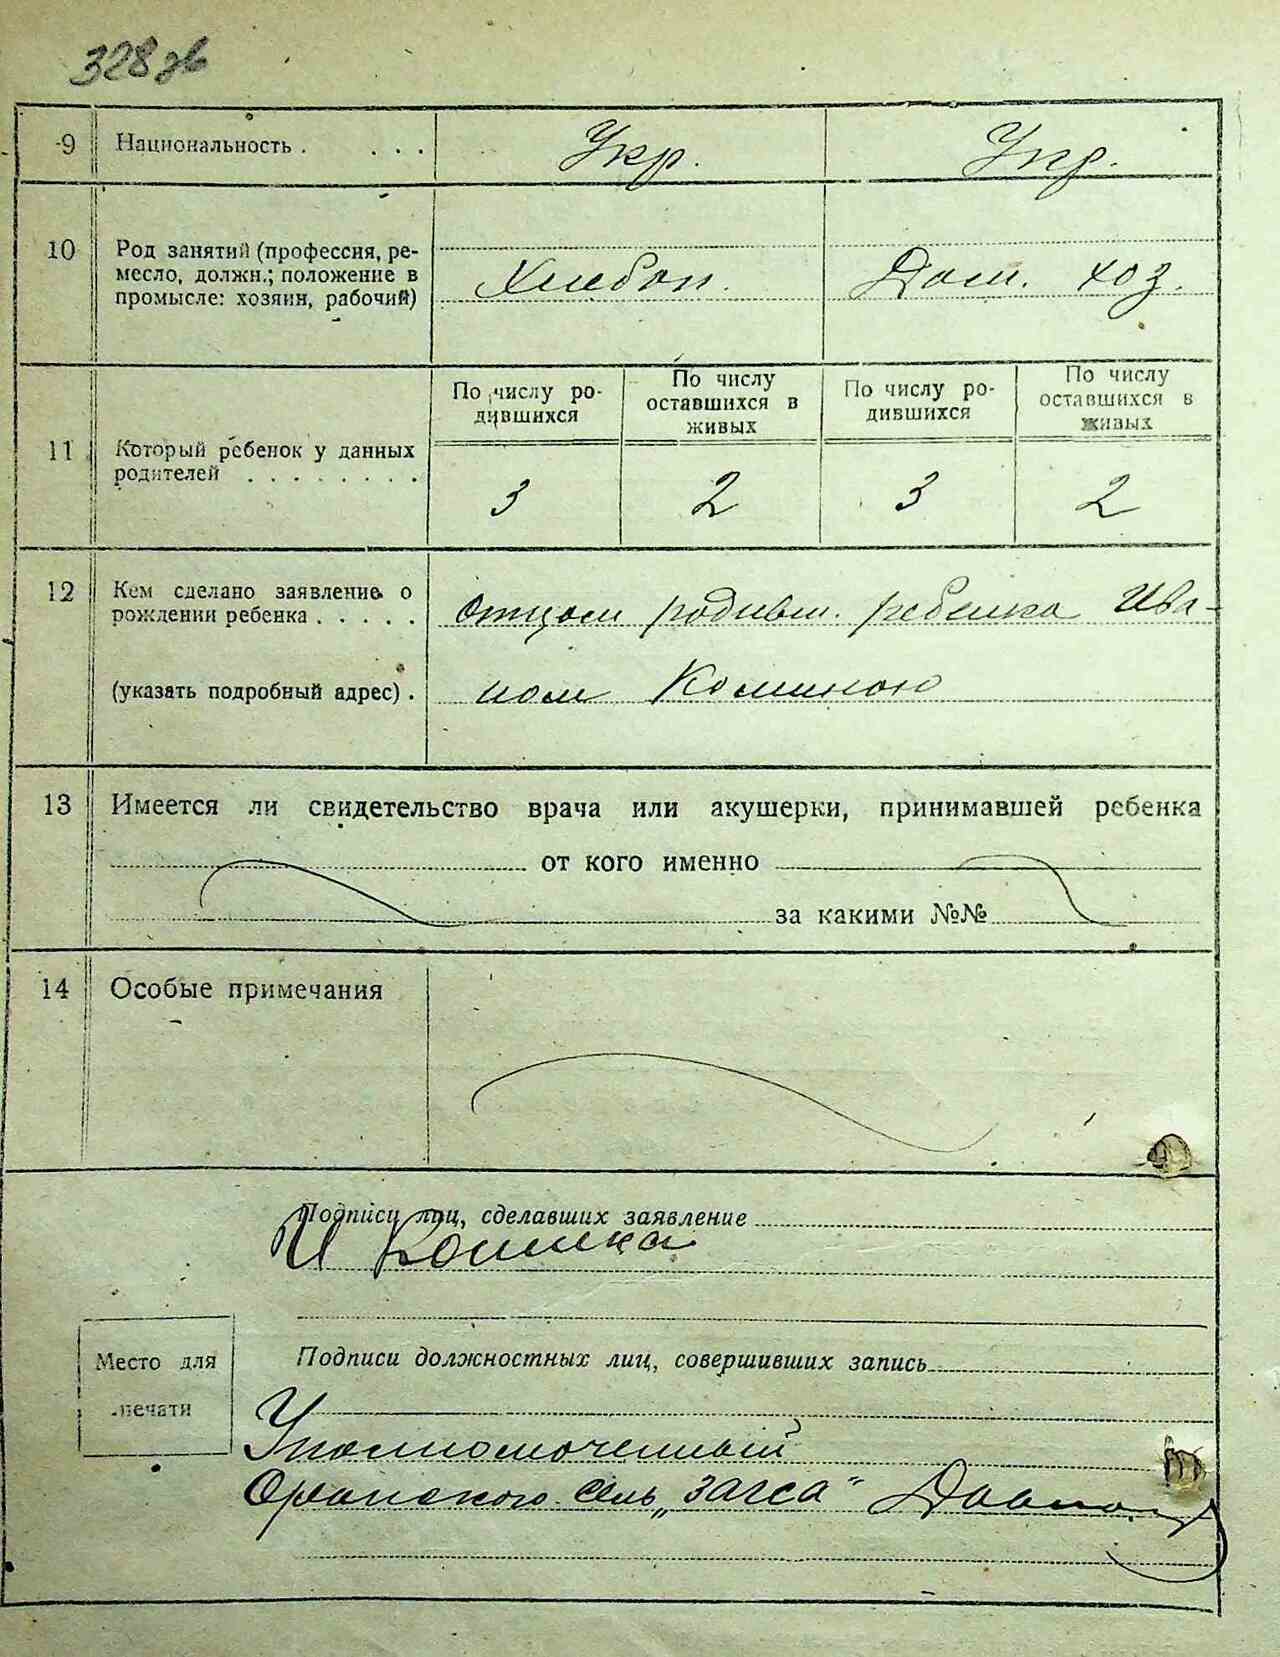 328 зв
9 Национальность . . . . Укр. Укр.
10 Род занятий (профессия, ре-
месло, должн.; положение в
промысле: хозяин, рабочий)
Хлебоп. Дом. хоз.
11 Который ребенок у данных
родителей . . . . . . . .
По числу ро-
дившихся
По числу
оставшихся в
живых
По числу ро-
дившихся
По числу
оставшихся в
живых
3 2 3 2
12 Кем сделано заявление о
рождении ребенка . . . . .
(указать подробный адрес) .
Отцом родивш. ребенка Ива-
ном
13 Имеется ли свидетельство врача или акушерки, принимавшей ребенка
от кого именно
за какими №№
14 Особые примечания
Подписи лиц, сделавших заявление
И
Место для
печати
Подписи должностных лиц, совершивших запись
Уполномоченный
сель „ЗАГСА"